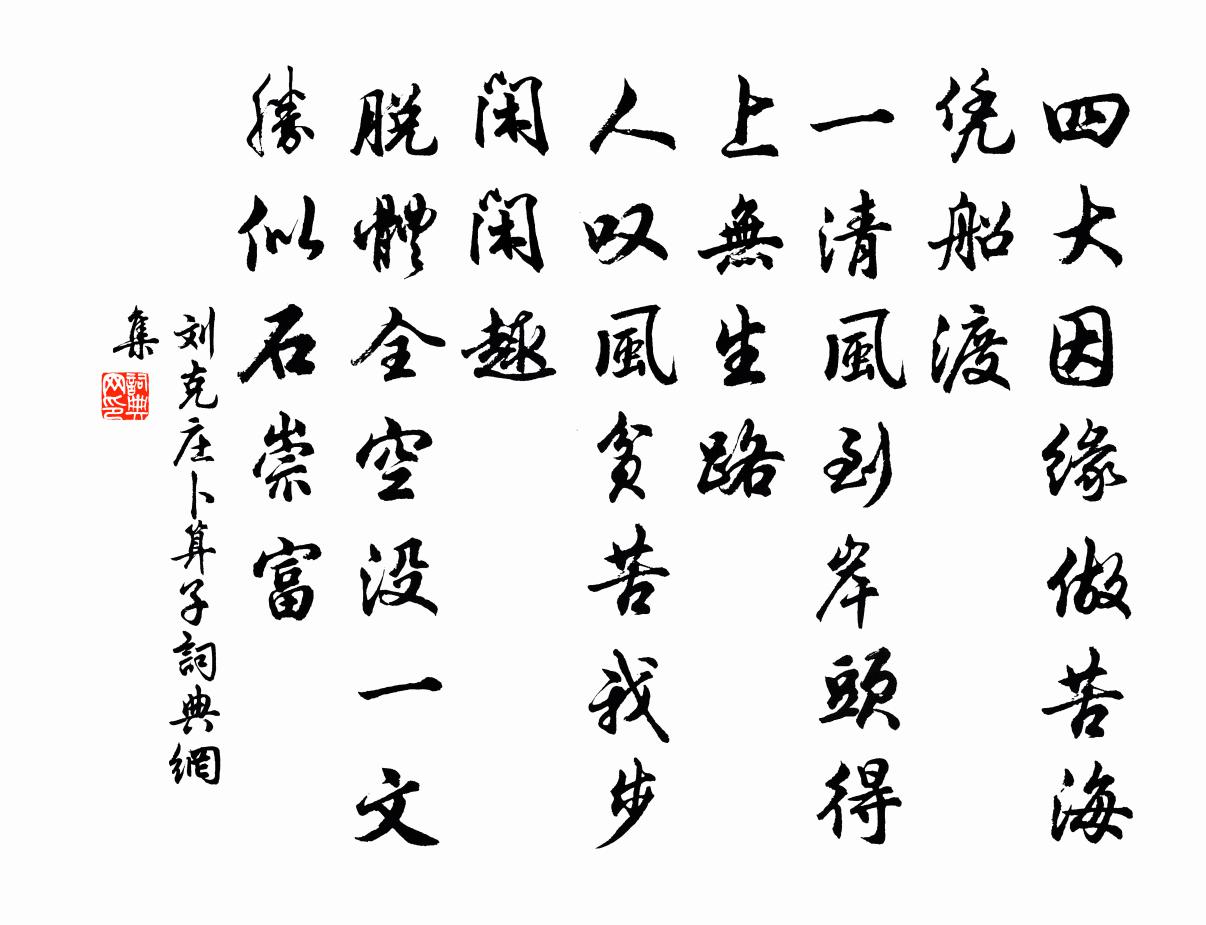 四大因缘做苦海
凭船渡
一清風到岸頭得
上無生路
人叹風貧苦我步
闲闲趣
脱體全空没一文
勝似石崇富
刘克庄卜算子詞典網
集
詞典网印